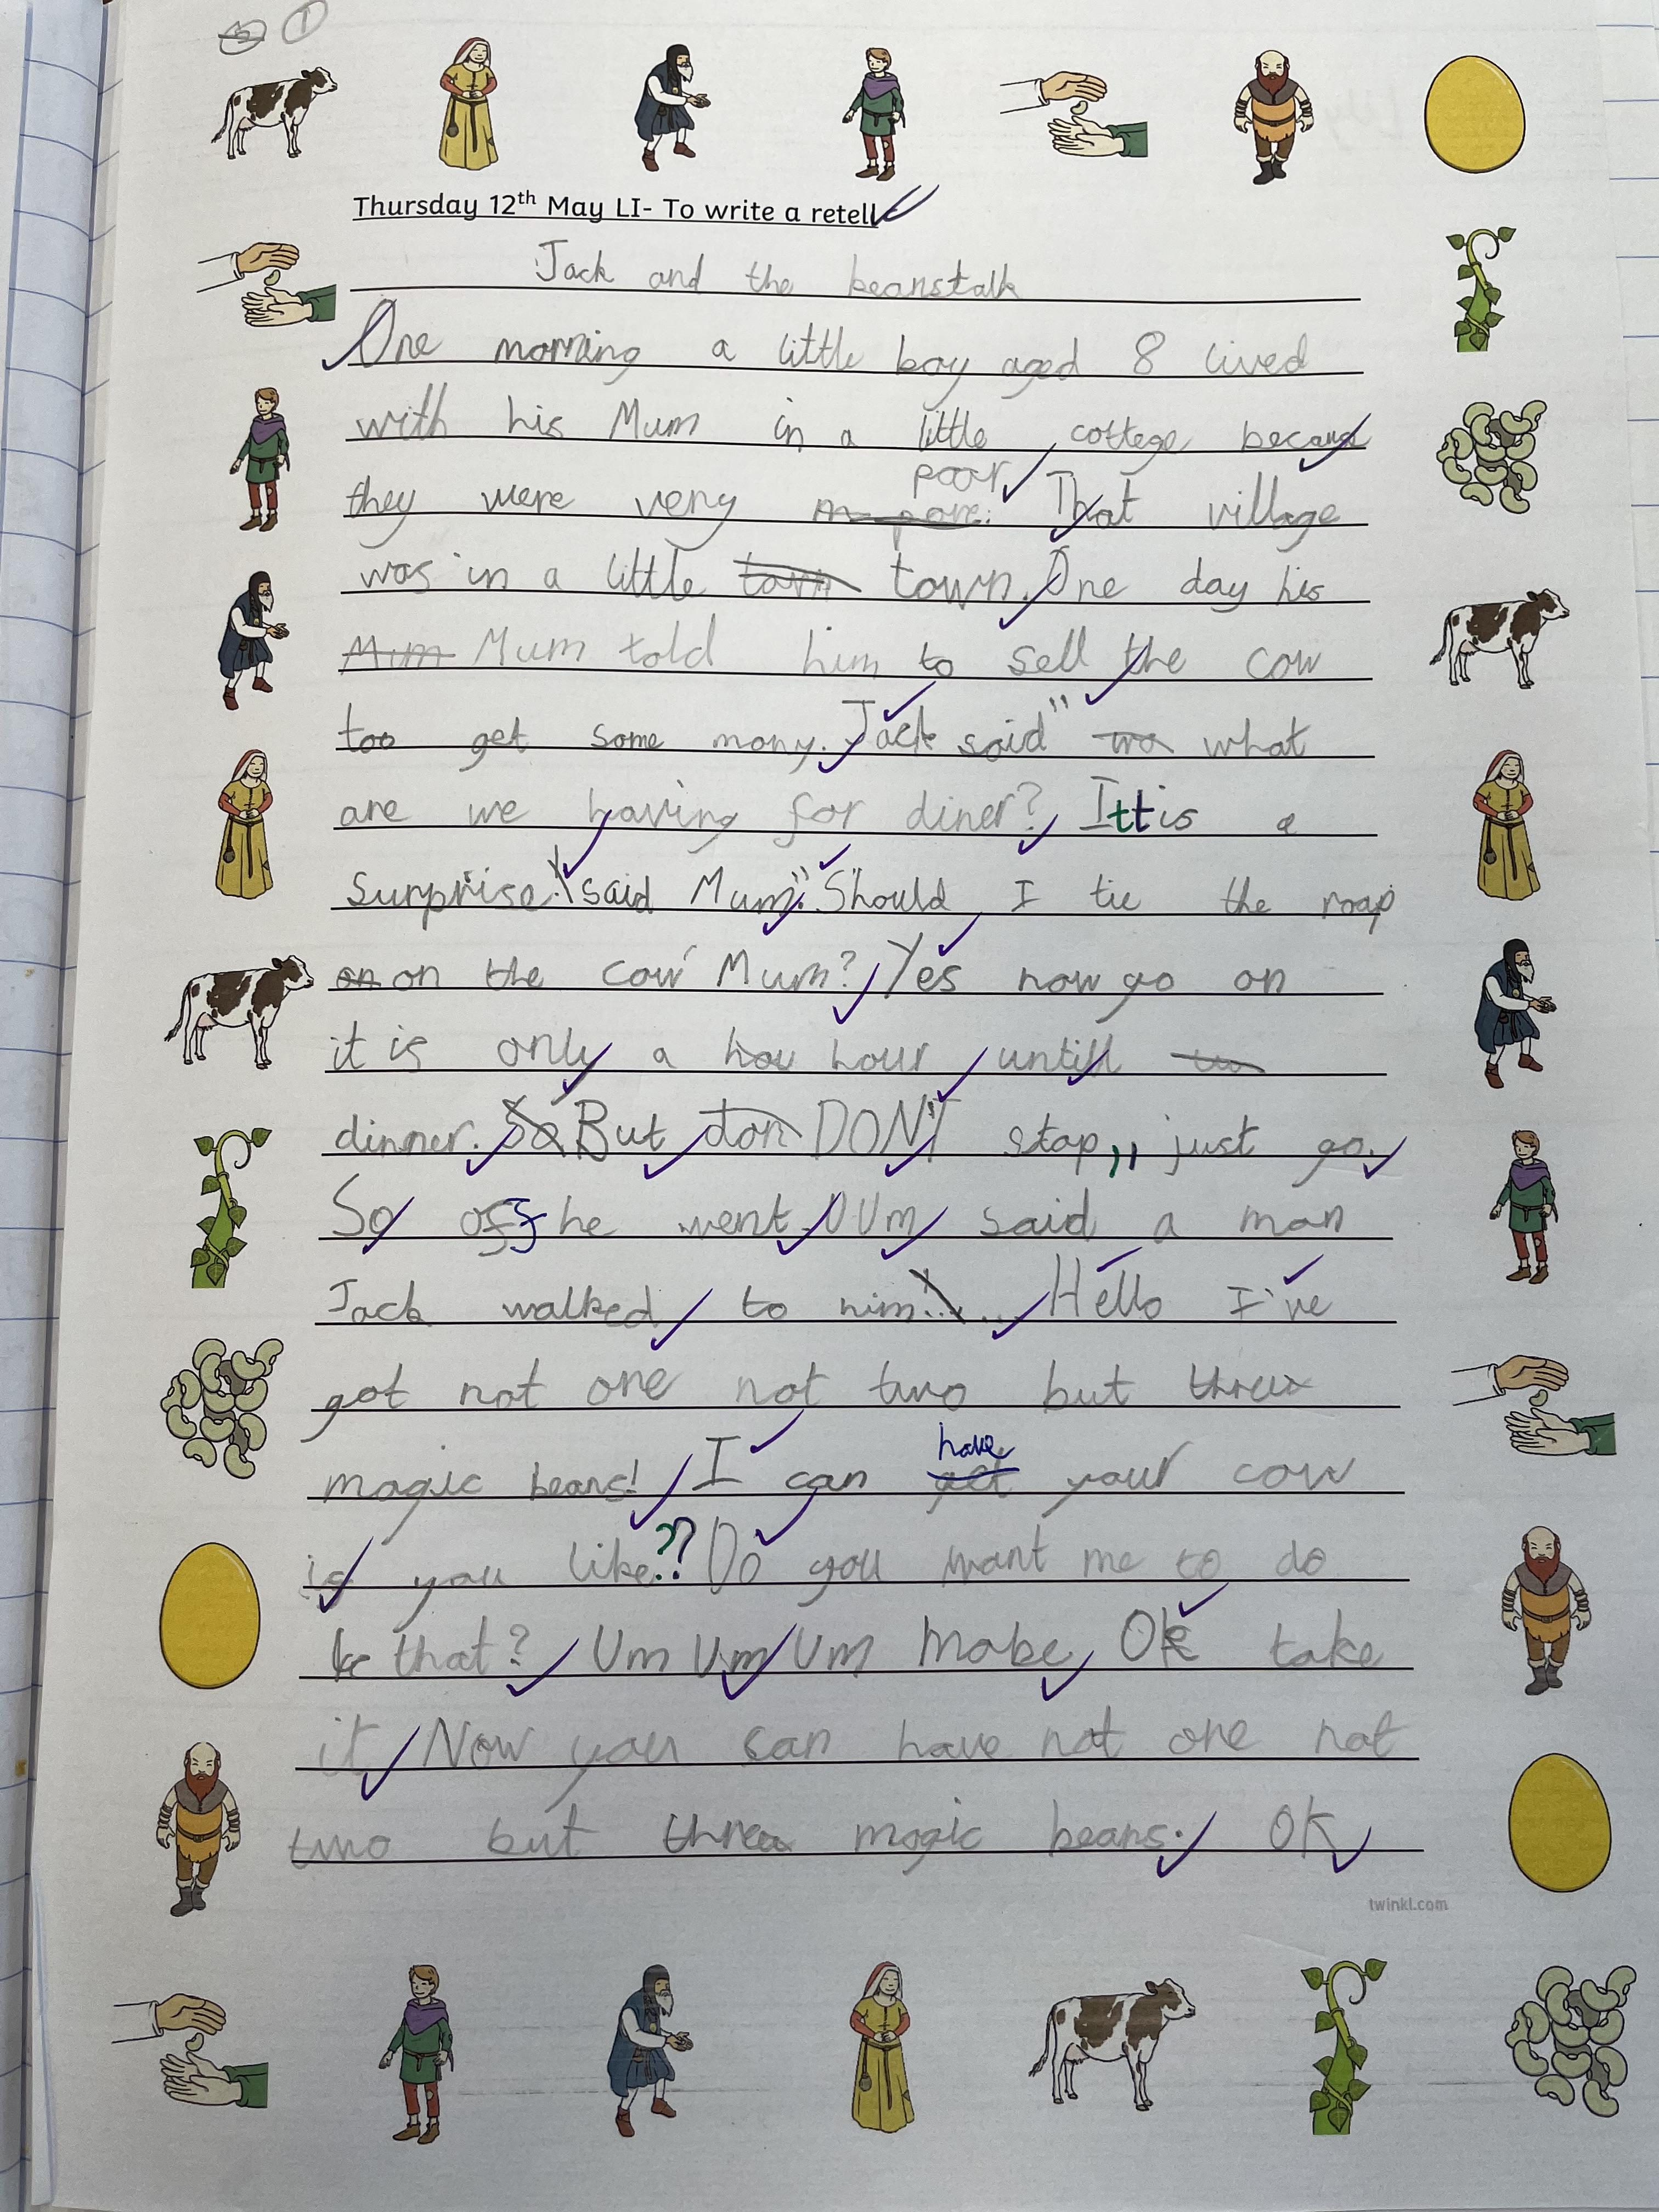 1
Thursday 12th May LI- To write a retell
Jack and the beanstalk
One morning a little boy aged 8 lived
with his Mum in a little cottege because
poor
they were very pore. That village
was in a little town town. One day his
Mum Mum told him to sell the cow
too get some mony. Jack said" wa what
are we having for diner? Itt is a
Surprise." said Mum." Should I tie the roap
on on the cow Mum? Yes now go on
it is only a hou hour untill
dinner. So But don DON'T stop,, just go.
So off he went. UUm said a man
Jack walked to him... Hello I've
got not one not two but three
have
magic beans! I can get your cow
if you like?? Do you want me to do
that? Um Um Um Mabe Ok take
it Now you can have not one not
two but three magic beans. OK
twinkl.com